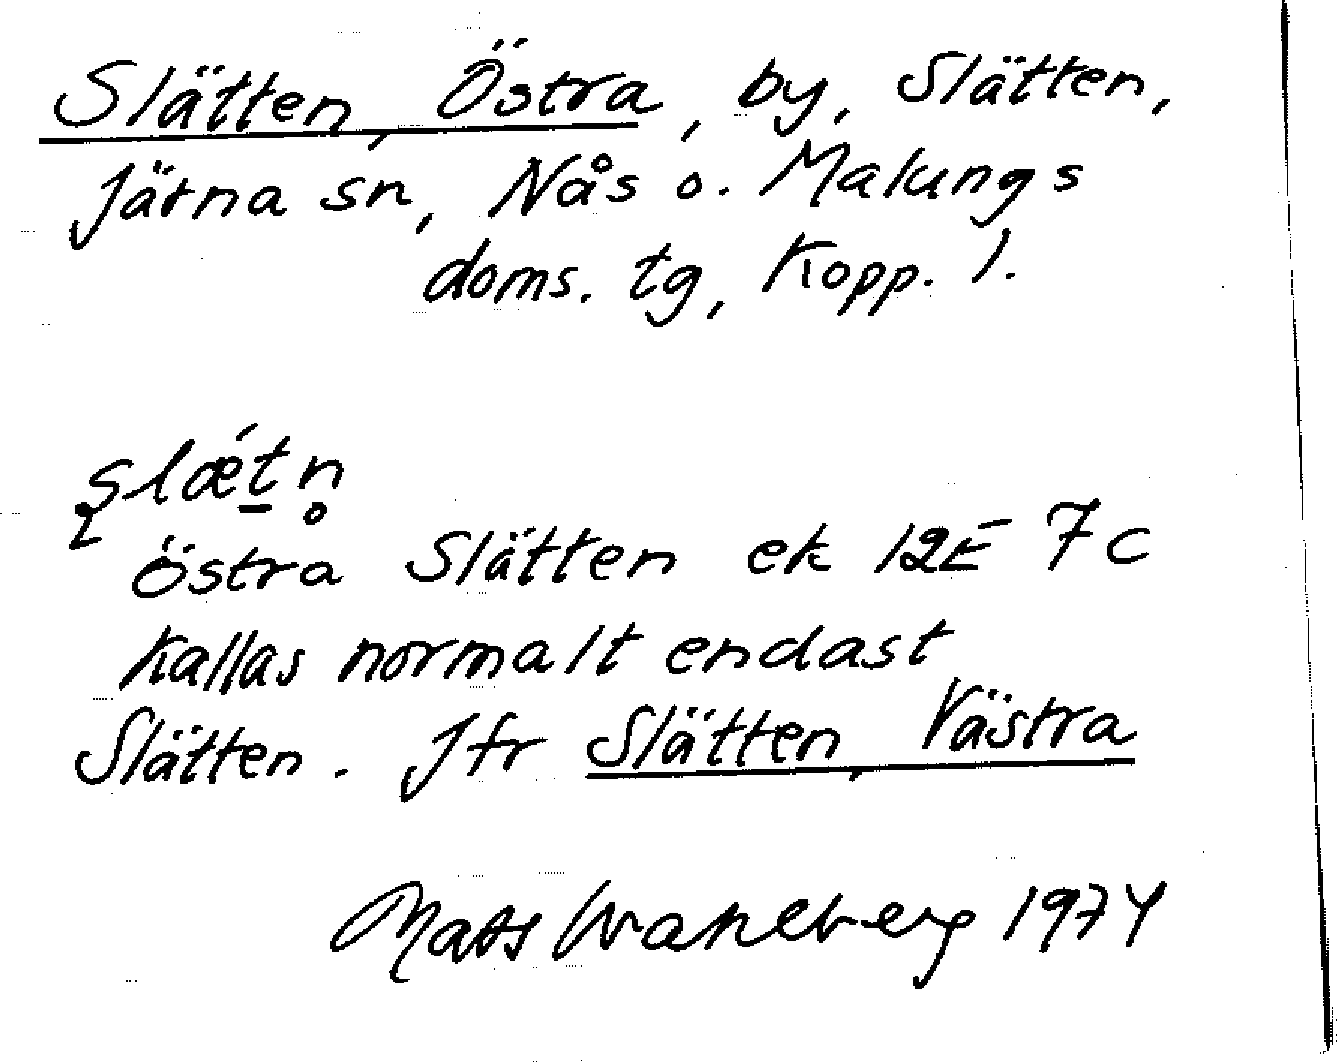 Slätten, Östra, by, Slätten,
Järna sn, Nås o. Malungs
doms. tg, Kopp. l.
şlǽt̲n̥
Östra Slätten ek 12E 7c
Kallas normalt endast
Slätten. Jfr Slätten, Västra
Mats Wahlberg 1974